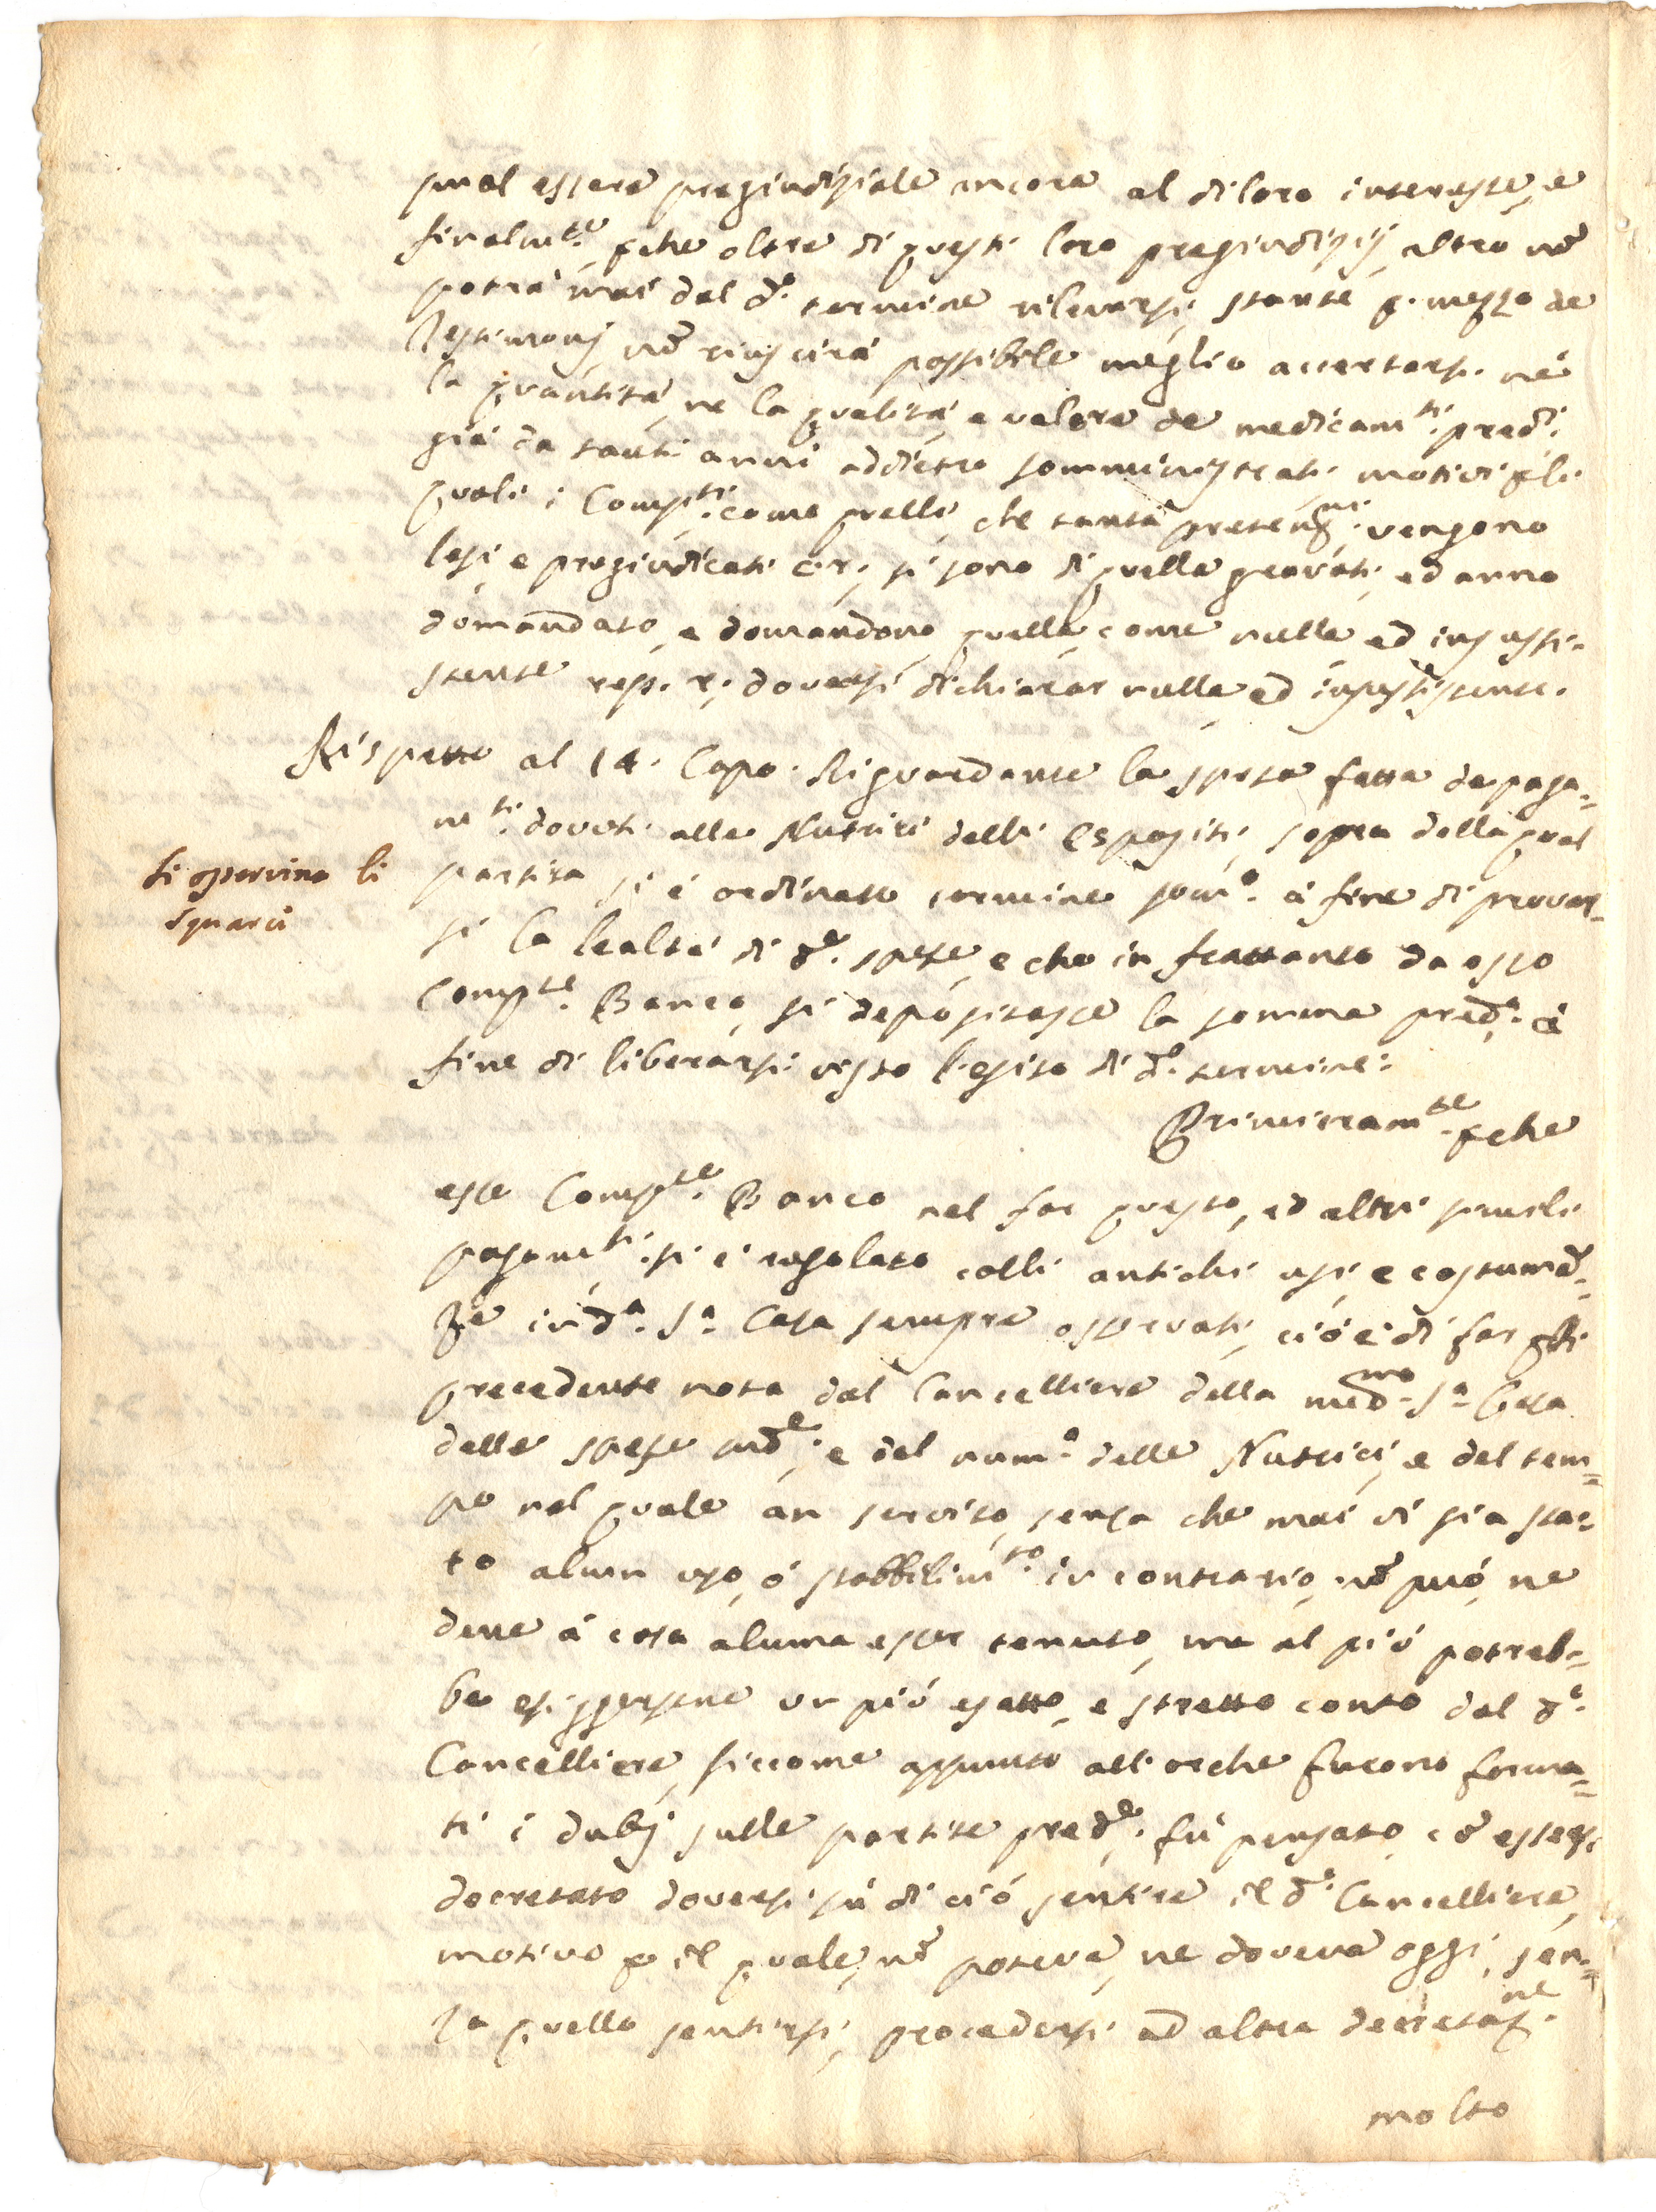 pual essere pregiudiziale ancora al di loro interesse, e
finalm.te p̱che oltre di questi loro pregiudizij, altro nō
potrà mai dal d.o termine rilevarsi, stante p. mezzo de
Testimonj nō riuscirà possibile meglio accertarsi nè
la quantità, ne la qualità, e valore de medicam.ti pred.i
già da tanti anni addietro somministrati motivi p̱ li
quali i Comp.ti come quelli, che tanta pretenz.ni vengono
lesi, e pregiudicati e r; si sono di quella gravati, ed anno
domandato, e domandono quella, come nulla ed insussi=
stente resp. r; doversi dichiarar nulla ed insussistente.
Rispetto al 14. Capo. Riguardante la spesa fatta de paga=
m.ti dovuti alle Nutrici delli Espositi, sopra della qual
Si osservino li
squarci
partita si è ordinato termine som.o à fine di provar=
si la lealtà di d.e spese, e che in frattanto da esso
Comp.te Banco, si depositasse la somma pred.a à
fine di liberarsi visto l'esito di d.o termine:
Primieram.te p̱che
esso Comp.te Banco nel far questo, ed altri simili
pagam.ti si è regolato colli antichi usi, e costumā=
ze in d.a S.a Casa sempre osservati, ciò è di far p̱li
precedente nota dal Cancelliere della med.ma S.a Casa
delle spese md.e, e del num.o delle Nutrici, e del tem=
po nel quale an servito, senza che mai vi sia sta=
to alcun uso, ò stabbilim.to in contrario, nō può, ne
deve à cosa alcuna esser tenuto, ma al più potreb=
be esiggersene un più esatto, e stretto conto dal d.o
Cancelliere, siccome appunto all'orche furono forma=
ti i dubj sulle partite pred.e, fù pensato, cō essersi
decretato doversi sù di ciò sentire il d.o Cancelliere,
motivo p̱ il quale, nō poteva, ne doveva oggi, sen=
za quello sentirsi, procedersi ad altra decretaz.ne
molto